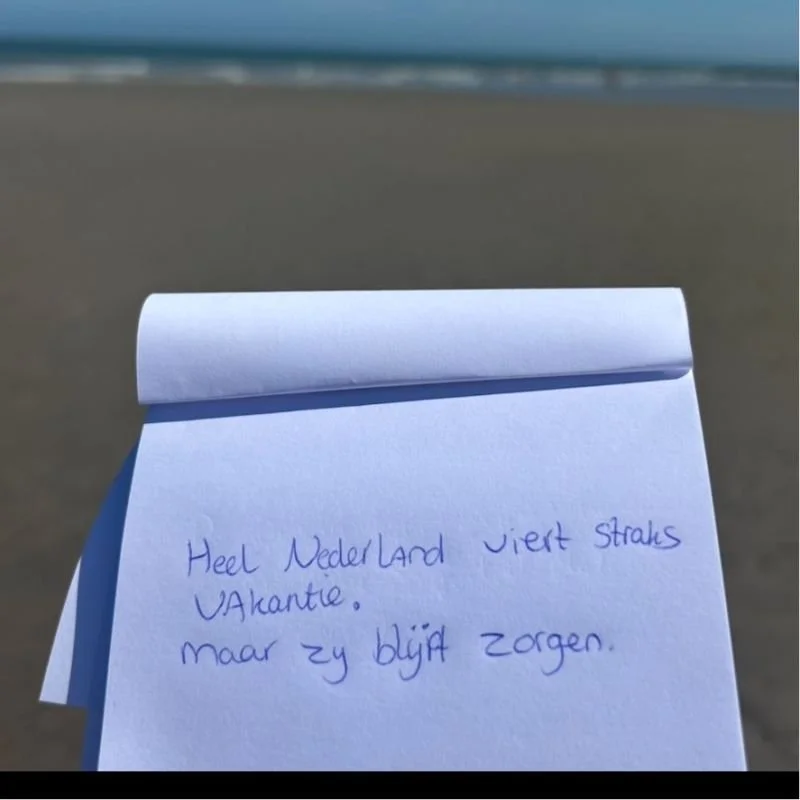 Heel Nederland viert straks
vakantie.
maar zy blijft zorgen.